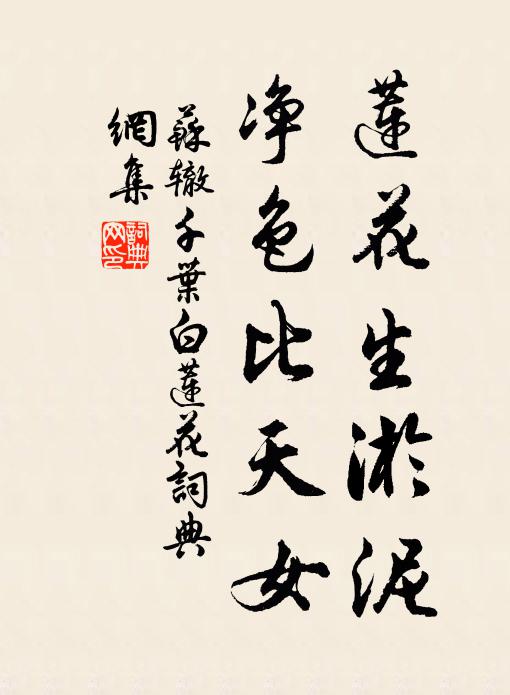 蓮花生淤泥
净色比天女
蘇辙千葉白蓮花詞典
網集
詞典
网印